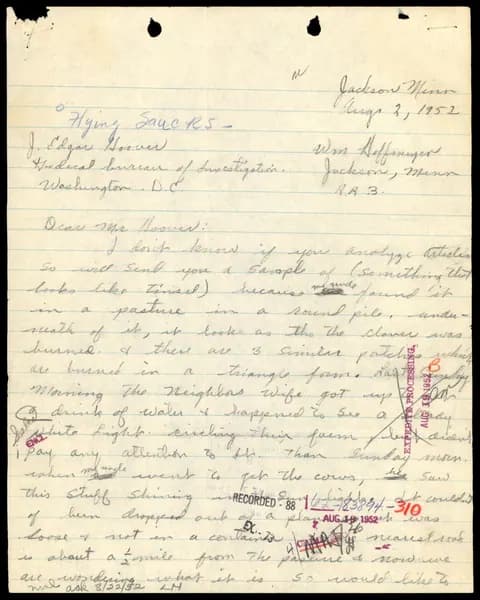 Jackson Minn
Augs 2, 1952
Flying Saucers -
J. Edgar Hoover
Wm Hoffmeyer
Federal bureau of Investigation.
Jackson, Minn
Washington. D.C
R.R 3.
Dear Mr Hoover:
I dont know if you analyze articles
so will send you a sample of (something that
looks like tinsel) because my uncle found it
in a pasture in a round pile. under-
neath of it, it looks as tho the clover was
burned. & there are 3 similar patches which
are burned in a triangle form. Last Sunday
Morning The Neighbors Wife got up
a drink of water & happened to see a
white light circling their farm didnt
Pay any attention to it. Than Sunday morn.
when my uncle went to get the cows, he saw
this stuff shining in the it couldnt
of been dropped out of a plane it was
loose & not in a container nearest road
is about a ½ mile from the pasture & now we
are wondering what it is so would like to
ENCL
EXPEDITE PROCESSING
AUG 19 1952
RECORDED - 88
62-83894-310
AUG 19 1952
EX.
ack 8/22/52